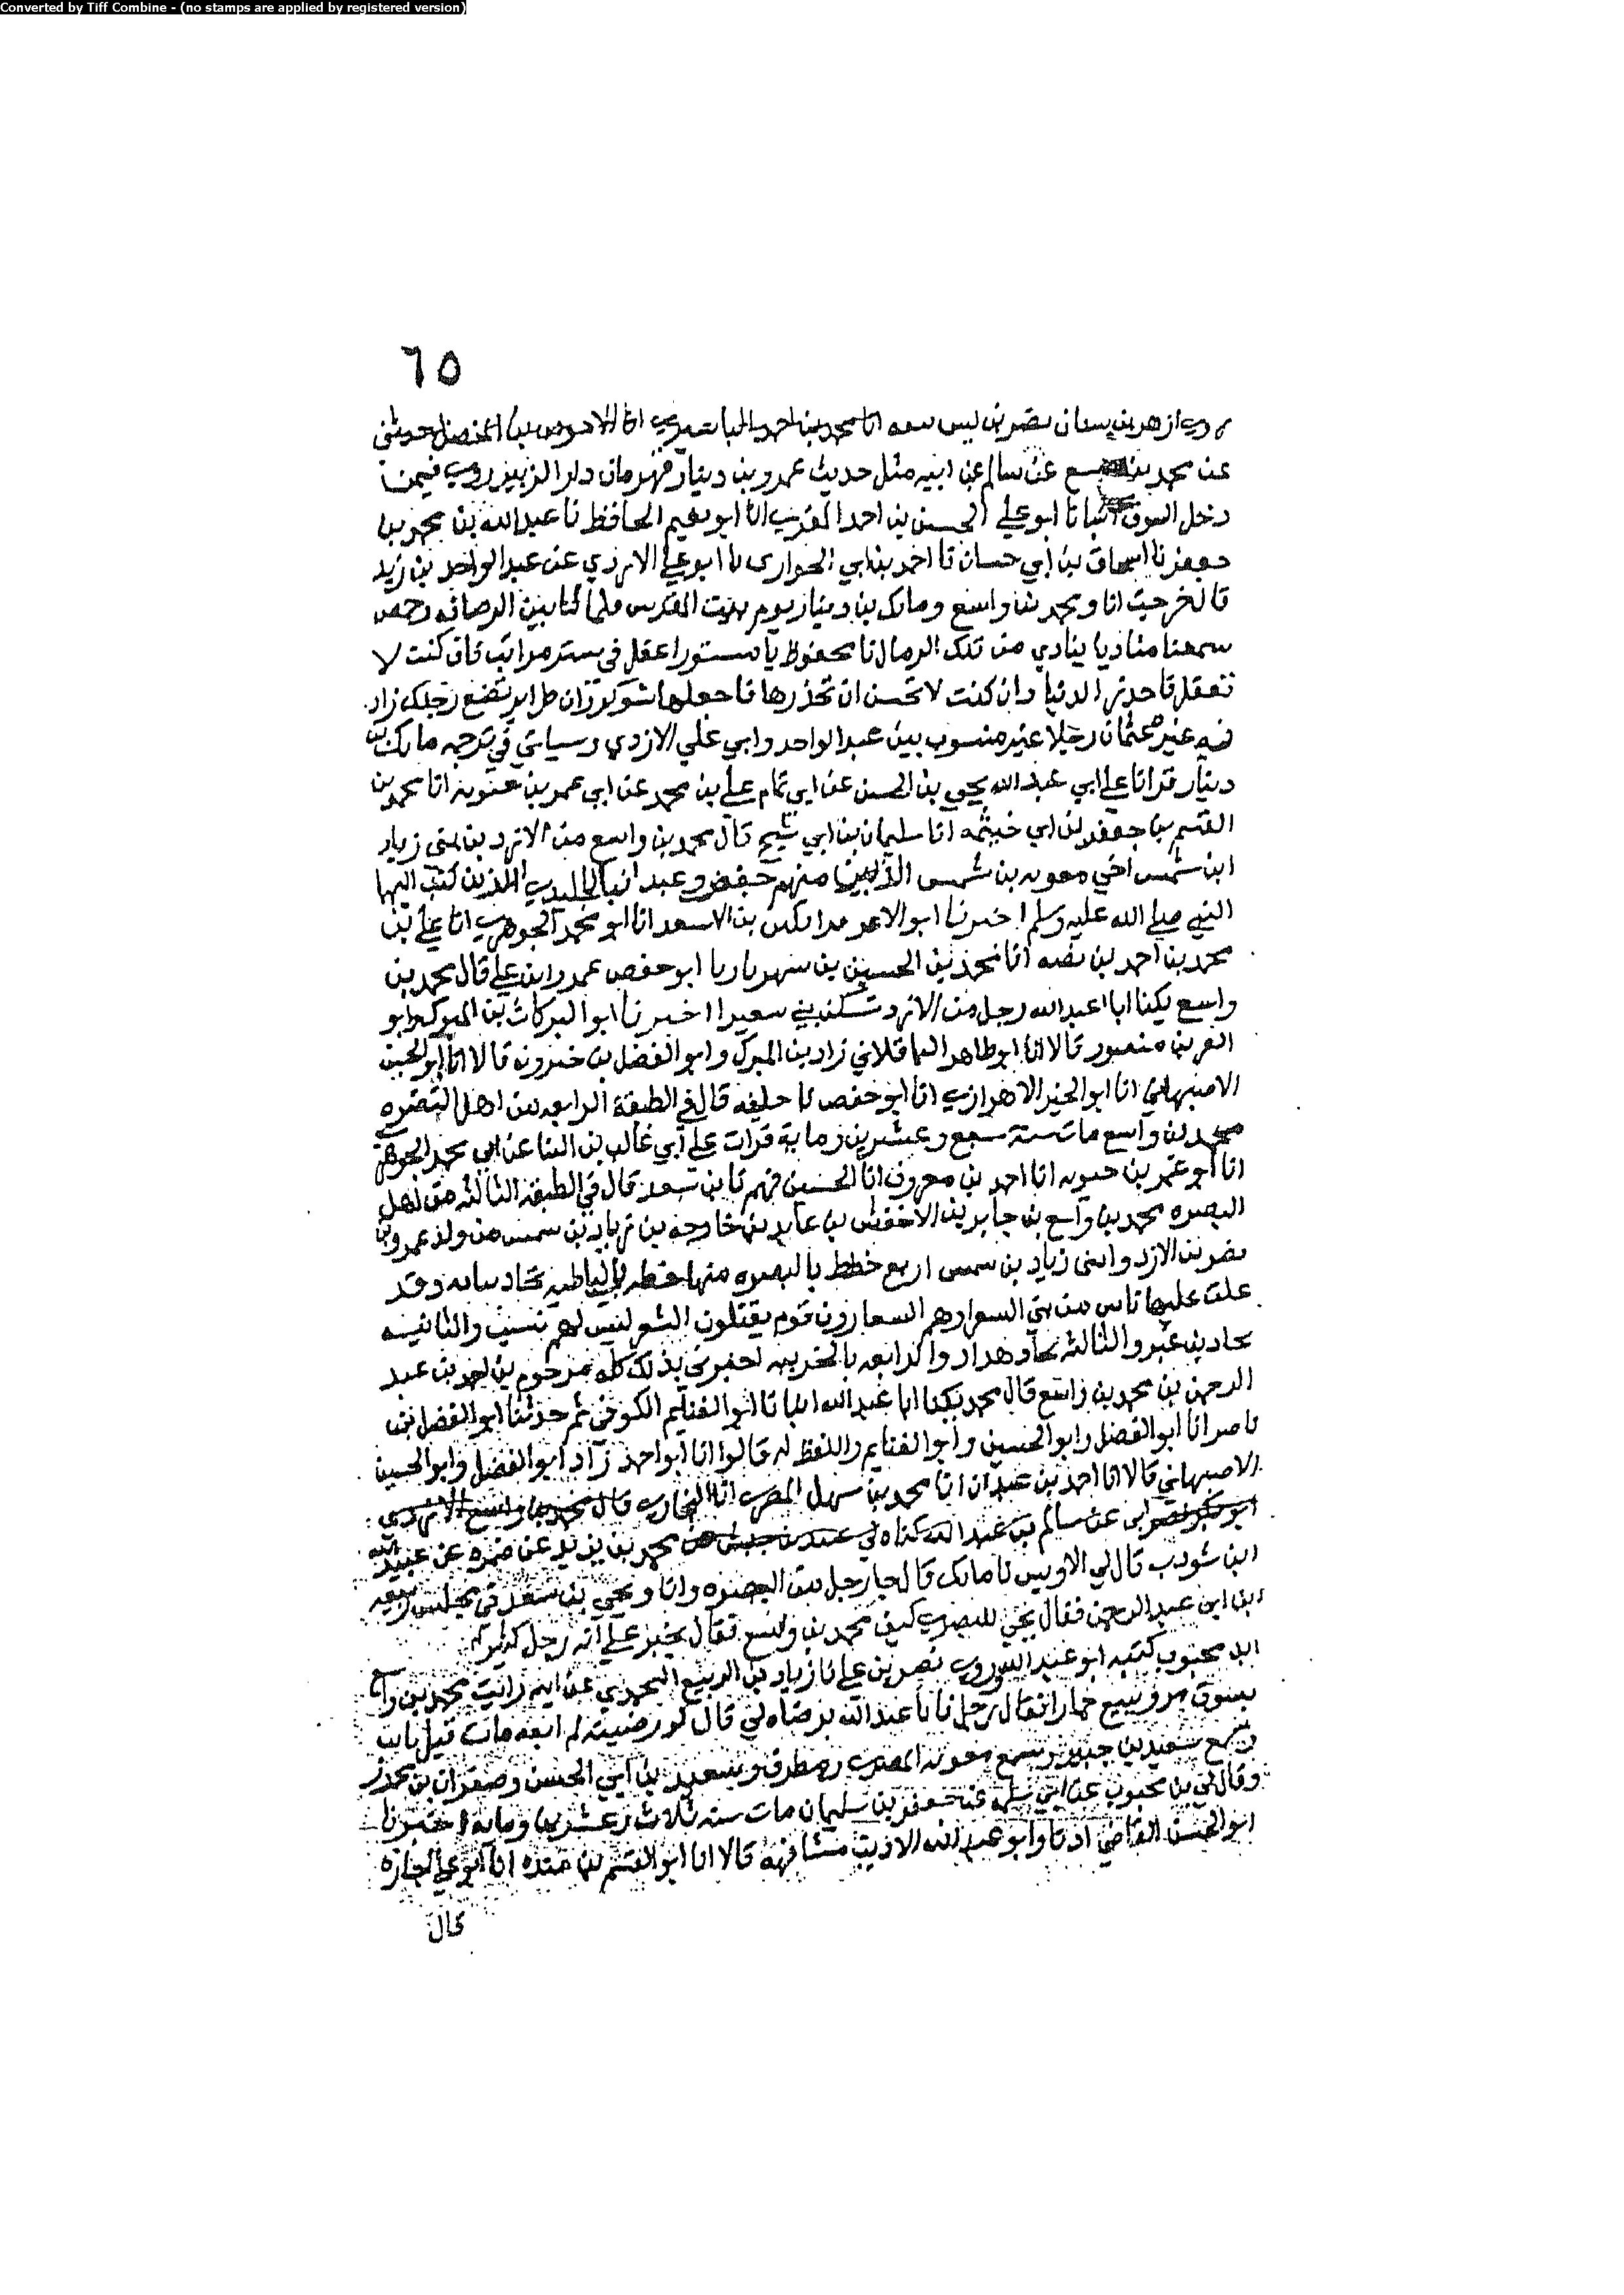 Converted by Tiff Combine - (no stamps are applied by registered version)
٦٥
ازهر بن انا محمد بن احمد انا الاحوص المفضل حدثني
عن محمد بن واسع عن سالم عن ابيه مثل حديث عمرو بن دينار قهرمان دار الزبير روي فيمن
دخل السوق انبانا ابو علي الحسن بن احمد المقري انا ابو نعيم الحافظ نا عبد الله بن محمد بن
جعفر نا اسحاق بن ابي حسان نا احمد بن ابي الحواري نا ابو علي الازدي عن عبد الواحد بن زيد
قال خرجت انا ومحمد بن واسع ومالك بن دينار يوم بيت المقدس فلما كنا بين الرصافه وحمص
سمعنا مناديا ينادي من تلك الرمال يا محفوظ يا مستور اعقل في ستر من انت فان كنت لا
تعقل فاحذر الدنيا وان كنت لا تحسن ان تحذرها فاجعلها شوكا وانظر اين تضع رجلك زاد
فيه غير عثمان رجلا غير منسوب بين عبد الواحد وابي علي الازدي وسياتي في ترجمه مالك بن
دينار قرانا علي ابي عبد الله يحيى بن الحسن عن ابي تمام علي بن محمد عن ابي عمر بن حيويه انا محمد بن
القسم بن جعفر بن ابي خيثمه انا سليمان بن ابي شيخ قال محمد بن واسع من الازد بن بني زياد
ابن شمس اخي معويه بن شمس الذين منهم جيفر وعبد ابنا الجلندي الذين كتب اليهما
النبي صلي الله عليه وسلم اخبرنا ابو الاعز قراتكين بن الاسعد انا ابو محمد الجوهري انا علي بن
محمد بن احمد بن نصير انا محمد بن الحسين بن شهريار نا ابو حفص عمرو بن علي قال محمد بن
واسع يكنا ابا عبد الله رجل من الازد سكن بني سعيد اخبرنا ابو البركات بن المبرك وابو
العز بن منصور قالا انا ابو طاهر الباقلاني زاد بن المبرك وابو الفضل بن خيرون قالا انا ابو الحسين
الاصبهاني انا ابو الحسين الاهوازي انا ابو حفص نا خليفه قال في الطبقة الرابعه من اهل البصره
محمد بن واسع مات سنة سبع وعشرين وماية قرات علي ابي غالب بن البنا عن ابي محمد الجوهري
انا ابو عمر بن حيويه انا احمد بن معروف انا الحسين بن فهم نا بن سعد قال في الطبقه الثالثه من اهل
البصره محمد بن واسع بن جابر بن الاخنس بن عايد بن خارجه بن زياد بن شمس من ولد عمرو بن
نصر بن الازد ولبني زياد بن شمس اربع خطط بالبصره منها خطه بالباطنه وقد
غلب عليها ناس من بني قوم يقتلون الشعر ليس لهم نسب والثانيه
والثالثه هداد والرابعه بالخريبه اخبرني بذلك كله مرحوم بن احمد بن عبد
الرحمن بن محمد بن واسع قال محمد يكنا ابا عبد الله انبانا ابو الغنايم الكوفي ثم حدثنا ابو الفضل بن
ناصر انا ابو الفضل وابو الحسين وابو الغنايم واللفظ له قالوا انا ابو احمد زاد ابو الفضل وابو الحسين
الاصبهاني قالا انا احمد بن عبدان انا محمد بن سهل المقري انا البخاري قال محمد بن واسع الازدي
ابو بكر بصري عن سالم بن عبد الله كناه لي محمد بن يزيد عن ضمره عن عبيد الله
ابن شوذب قال لي الاويسي نا مالك قال جا رجل من البصره وانا ويحي بن سعد في مجلس ربيعه
ابن ابي عبد الرحمن فقال يحي للبصري كيف محمد بن واسع فقال بخير علي انه رجل كثير
محبوب كنيته ابو عبد الله نصر بن علي نا زياد بن الربيع اليحمدي عن ابيه رايت محمد بن واسع
بسوق مرو يبيع حمارا فقال رجل يابا عبد الله ترضاه لي قال لو رضيته لم ابعه مات قبل ثابت
سمع سعيد بن جبير ومطرف وسعيد بن ابي الحسن وصفوان بن محرز
وقال لي بن محبوب عن ابي سلمه عن جعفر بن سليمان مات سنه ثلاث وعشرين وماية اخبرنا
ابو الحسن القاضي اذنا وابو عبد الله الاديب مشافهة قالا انا ابو القسم بن منده انا ابو علي اجازه
قال